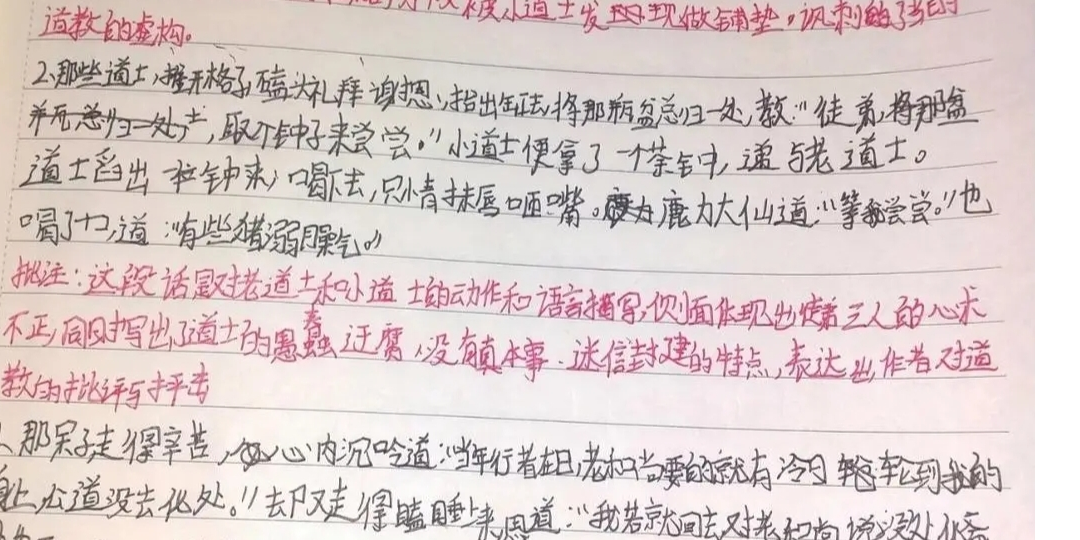 被小道士发现做铺垫。讽刺了当时
道教的虚构。
2、那些道士,推开格子,磕头礼拜谢恩,抬出缸去,将那瓶盆总归一处,教:"徒弟,
取个钟子来尝尝。"小道士便拿了一个茶钟,递与老道士。
道士舀出一钟来,喝下去,只情抹唇咂嘴。鹿力大仙道:"等我尝尝。"也
喝了一口,道:"有些猪溺臊气。"
批注:这段话是对老道士和小道士的动作和语言描写,侧面体现出徒弟三人的心术
不正,同时写出了道士的愚蠢迂腐,没有真本事、迷信封建的特点,表达出作者对道
教的批评与抨击
、那呆子走得辛苦,心内沉吟道:"当年行者在日,老和尚要的就有,今日轮到我的
身上,公道没去化处。"却又走得瞌睡来,思道:"我若就回去,对老和尚说没处化斋